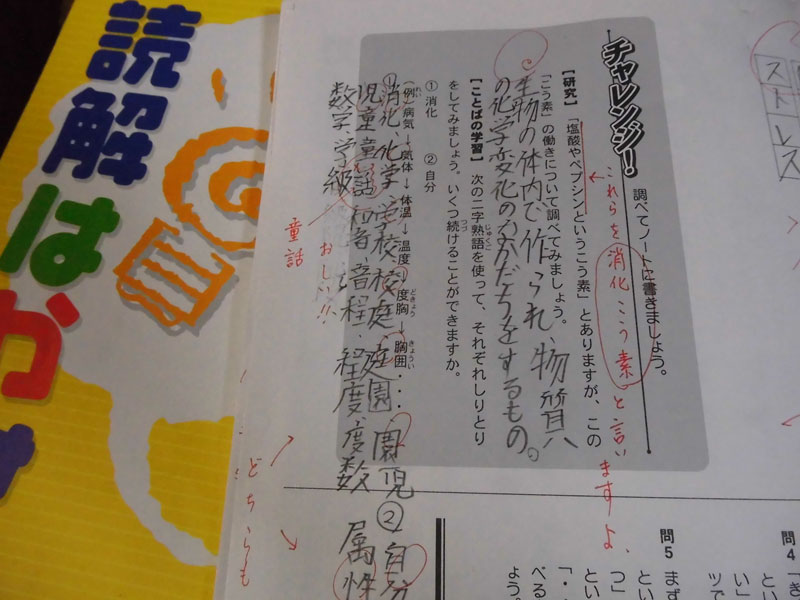 読解はか
ストレス
チャレンジ!
調べてノートに書きましょう。
【研究】「塩酸やペプシンというこう素」とありますが、この
「こう素」の働きについて調べてみましょう。
これらを消化こう素と言いますよ、
生物の体内で作られ、物質
の化学変化のなかだちをするもの。
【ことばの学習】次の二字熟語を使って、それぞれしりとり
じゅくご
をしてみましょう。いくつ続けることができますか。
つづ
①消化 ②自分
(例)病気→気体→体温→温度→度胸→胸囲・・・
れい
どきょう
きょうい
①消化、化学、学校、校庭、庭園、園児 ②自分
児童、童話
音程、程度、度数
数字、学級
属性
童話
おしい!!
どちらも
問4
問5
まず